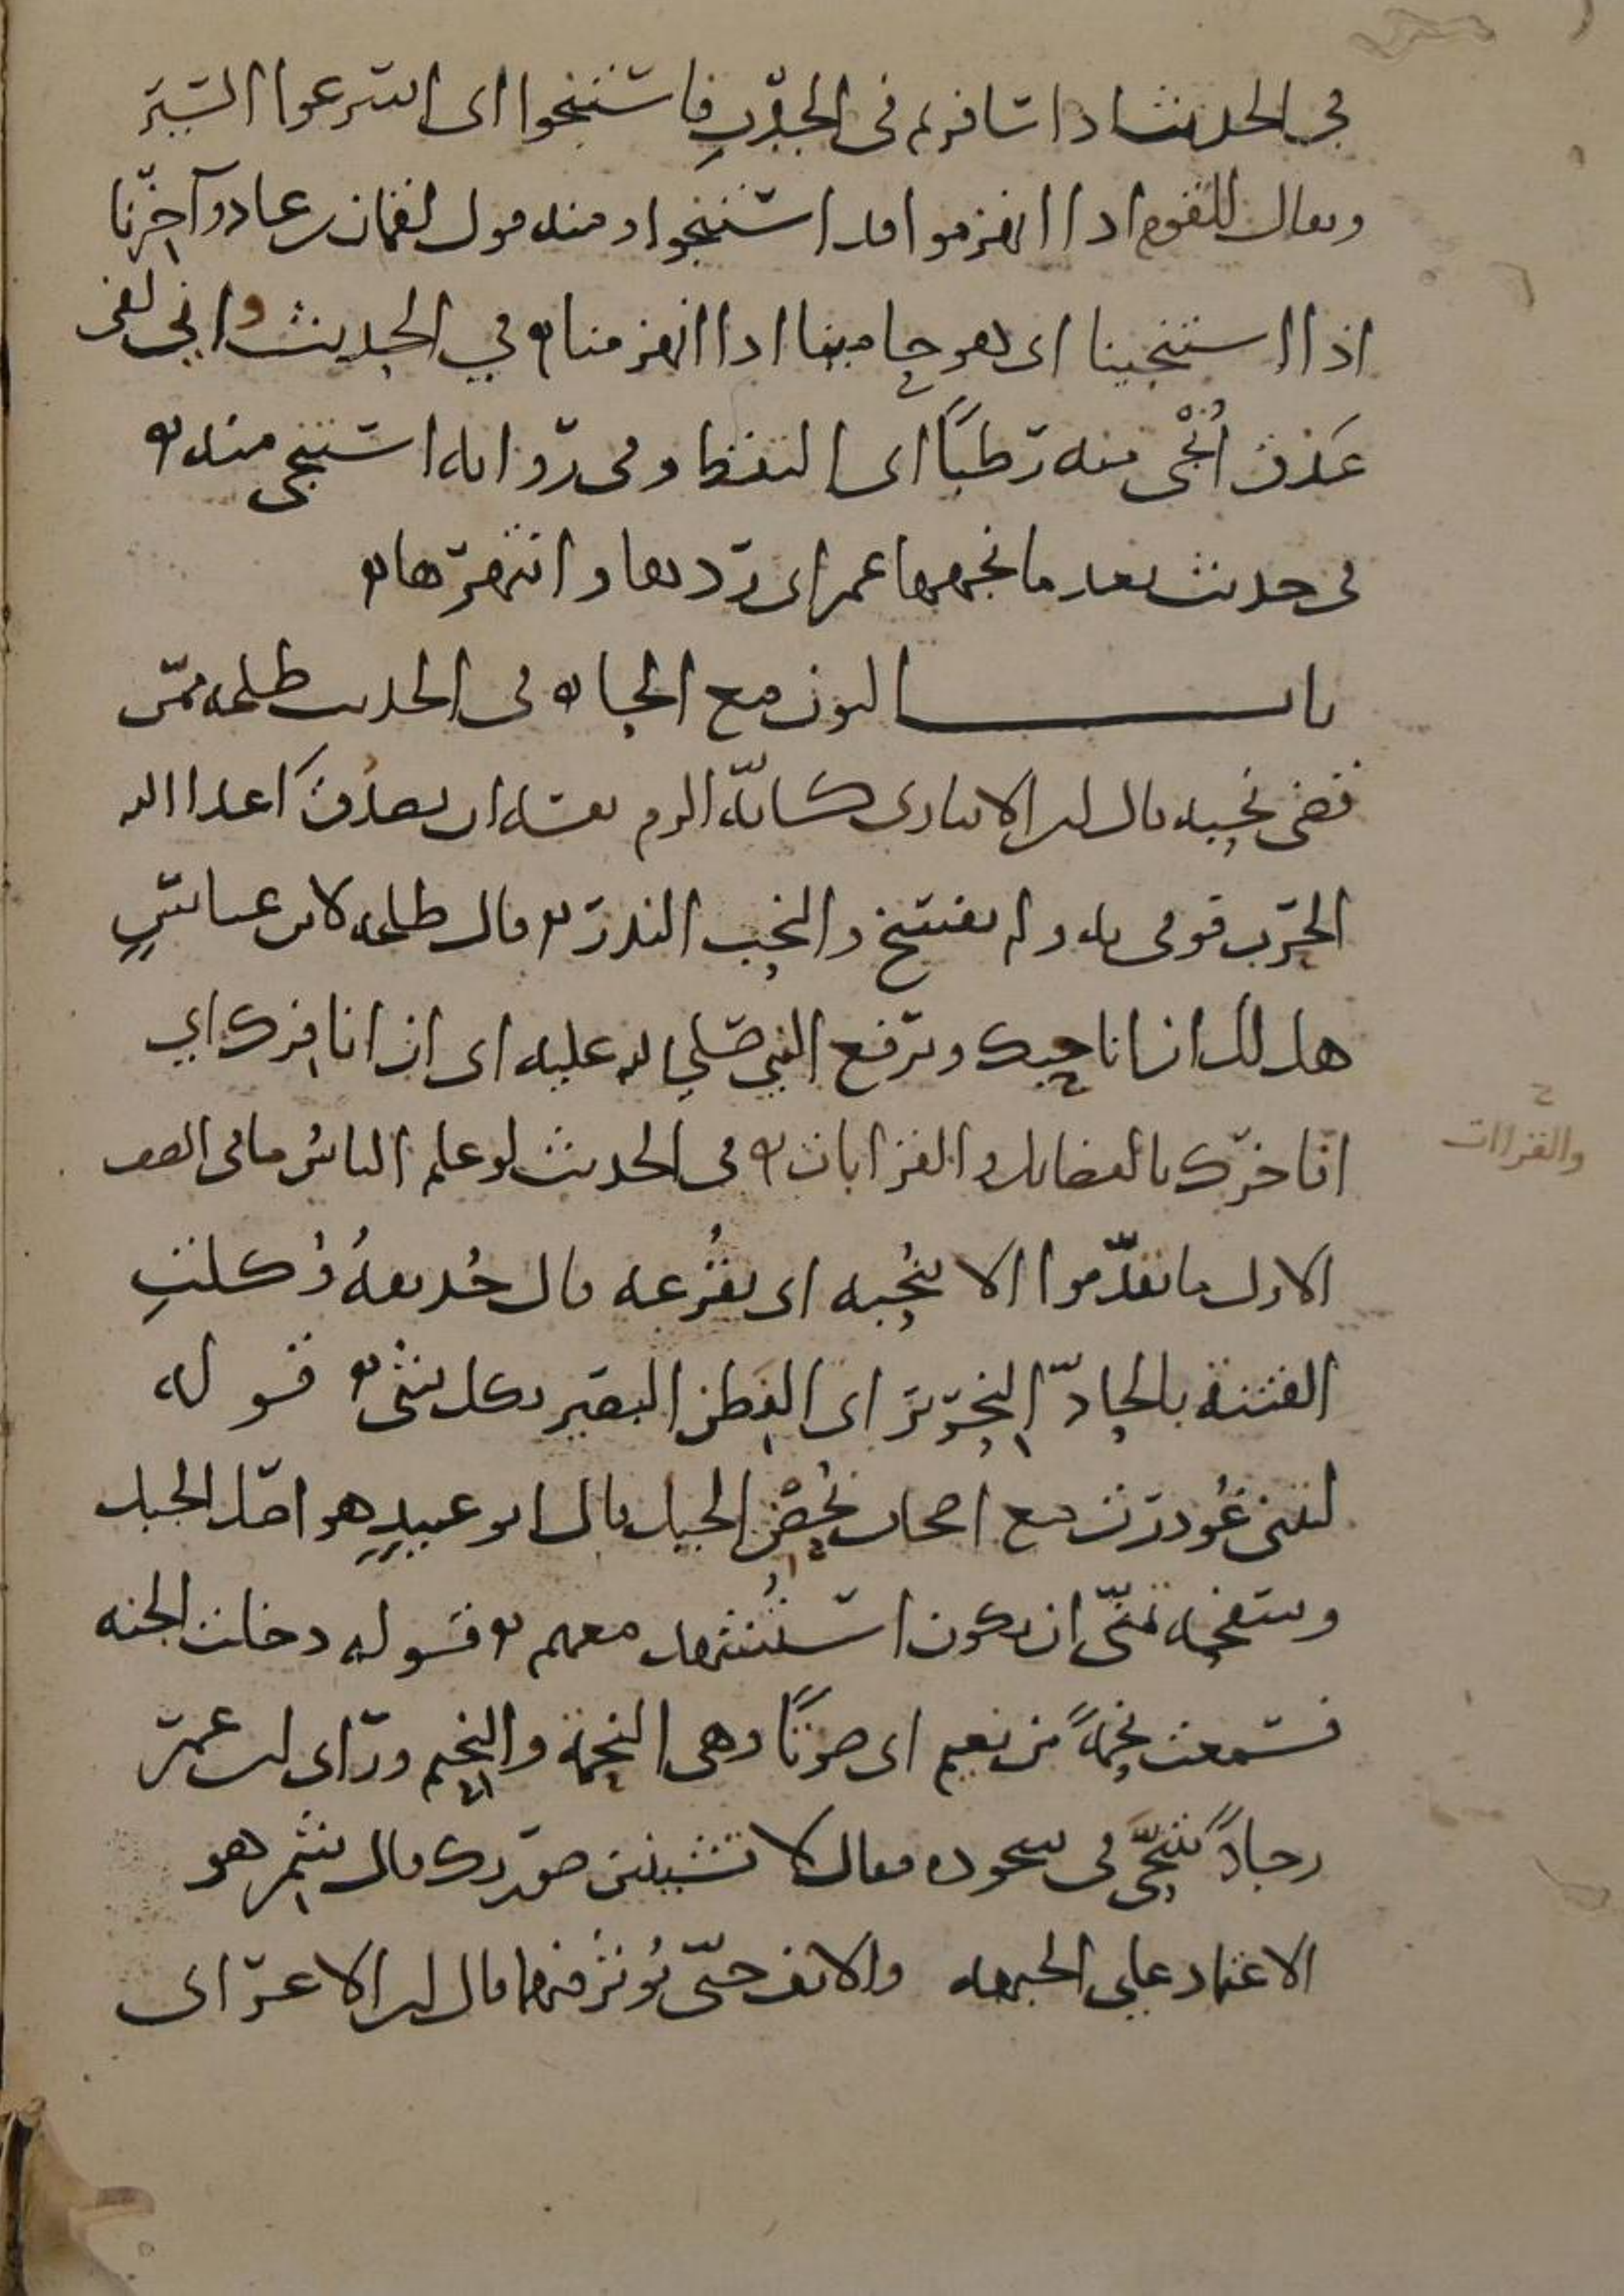 في الحديث اذا سافرتم في الجدب فاستنجوا اى اسرعوا السير
ويقال للقوم اذا انهزموا قد استنجوا ومنه قول لقمان بن عاد وآخرنا
اذا استنجينا اى هو حامينا اذا انهزمنا ۞ في الحديث واني لفى
عذق اُنْجى منه رطبًا اى التقط وفي رواية استنجى منه ۞
في حديث بعد ما نجهها عمر اى ردها وانتهرها ۞
باب النون مع الحاء ۞ في الحديث طلحة ممن
قضى نحبه قال ابن الانبارى كانّه الزم نفسه ان يصدُقَ اعداء الله
الحرب فوفى به ولم يفسخ والنحب النذر ۞ قال طلحة لابن عباسٍ
هل لك ان اناحبك وترفع النبي صلى الله عليه اى ان انافرك اي
افاخرك بالفضايل والقرابات ۞ في الحديث لو علم الناسُ ما في الصف
والقرابات
الاول ما تقدّموا الا بنُحبه اى بقُرعه قال حُذيفةُ وُكلتِ
الفتنة بالحادّ النحرير اى الفَطِن البصير بكل شى ۞ قوله
ليتنى غُودرت مع اصحاب نُحْصِ الجبل قال ابو عبيدٍ هو اصل الجبل
وسفحه تمنّى ان يكون استُشهد معهم ۞ قوله دخلت الجنه
فسمعت نحمةً من نعيم اى صوتًا وهى النحمة والنحيم ورأى ابن عمر
رجلاً ينتحّى فى سجوده فقال لا تشينن صورتك قال شمِر هو
الاعتماد على الجبهه والانف حتّى يُؤثر فيهما قال ابن الاعرابى